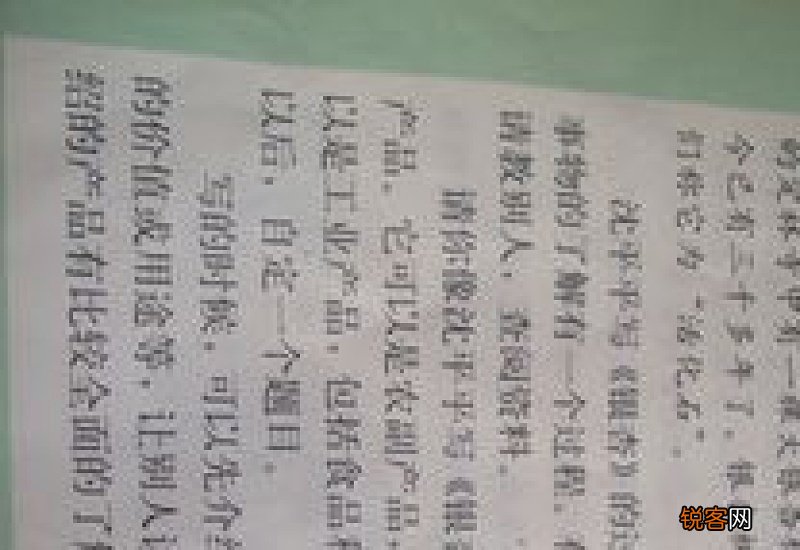 的是林子中有一棵大银杏
今已有三千多年了，银
们称它为“活化石”。
沈平平写《银杏》的
事物的了解有一个过程，
请教别人，查阅资料。
请你像沈平平写《银
产品，它可以是农副产品，
以是工业产品，包括食品
以后，自定一个题目。
写的时候，可以先介
的价值或用途等，让别人
绍的产品有比较全面的了
锐客网